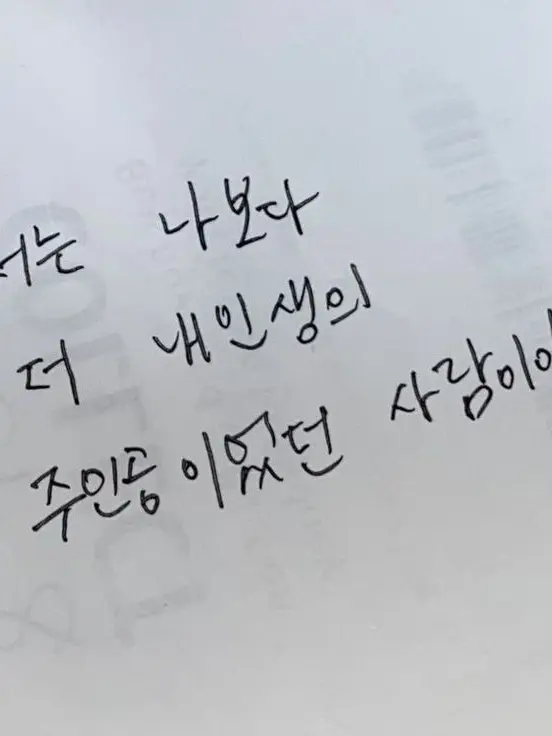 너는 나보다
더 내인생의
주인공이었던 사람이야